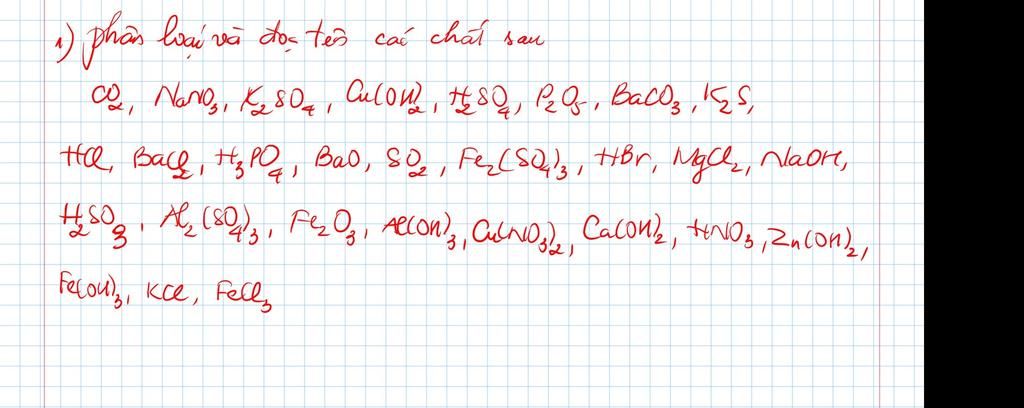 1) phân loại và đọc tên các chất sau
CO₂, NaNO₃, K₂SO₄, Cu(OH)₂, H₂SO₄, P₂O₅, BaCO₃, K₂S,
HCl, BaCl₂, H₃PO₄, BaO, SO₂, Fe₂(SO₄)₃, HBr, MgCl₂, NaOH,
H₂SO₃, Al₂(SO₄)₃, Fe₂O₃, Al(OH)₃, Cu(NO₃)₂, Ca(OH)₂, HNO₃, Zn(OH)₂,
Fe(OH)₃, KCl, FeCl₃